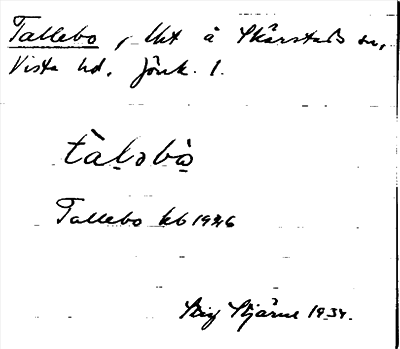 Tallebo, lht å Skärstads sn,
Vista hd. Jönk. l.
tàlobò
Tallebo kb 1926
Stig Stjärne 1934.